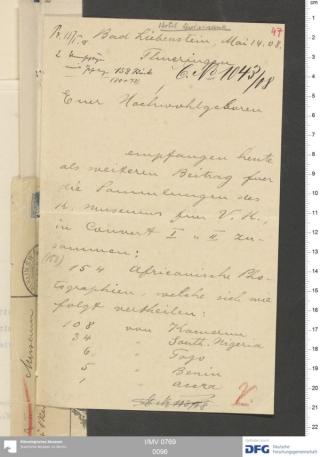 Hotel
47
Bad Liebenstein, Mai 14. 08.
Thueringen
C. No 1043/08
Euer Hochwohlgeboren
empfangen heute
als weiteren Beitrag fuer
die Sammlungen des
K. Museums fuer V. K.,
in Convert I u. II zu-
sammen:
154 Africanische Pho-
tographien, welche sich wie
folgt vertheilen:
108 von Kamerun
34 " South. Nigeria
6 " Togo
5 " Benin
1 " Accra
Museum
I/MV 0769
0096
Ethnologisches Museum
Staatliche Museen zu Berlin
Gefördert durch
DFG Deutsche
Forschungsgemeinschaft
1
2
3
4
5
6
7
8
9
10
11
12
13
14
15
16
17
18
19
20
21
22